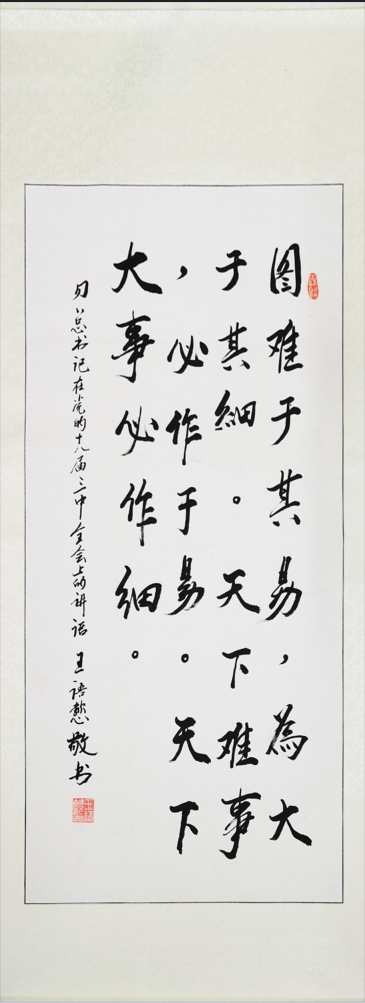 图难于其易，为大
于其细。天下难事
，必作于易。天下
大事必作细。
总书记在党的十八届三中全会上的讲话 王语慧敬书